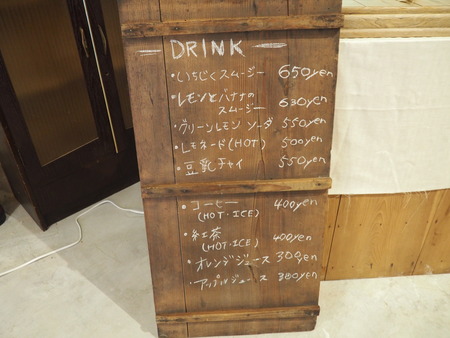 DRINK
・いちじくスムージー 650yen
・レモンとバナナの
スムージー 630yen
・グリーンレモン ソーダ 550yen
・レモネード(HOT) 500yen
・豆乳チャイ 550yen
・コーヒー 400yen
(HOT・ICE)
・紅茶
(HOT・ICE) 400yen
・オレンジジュース 300yen
・アップルジュース 380yen